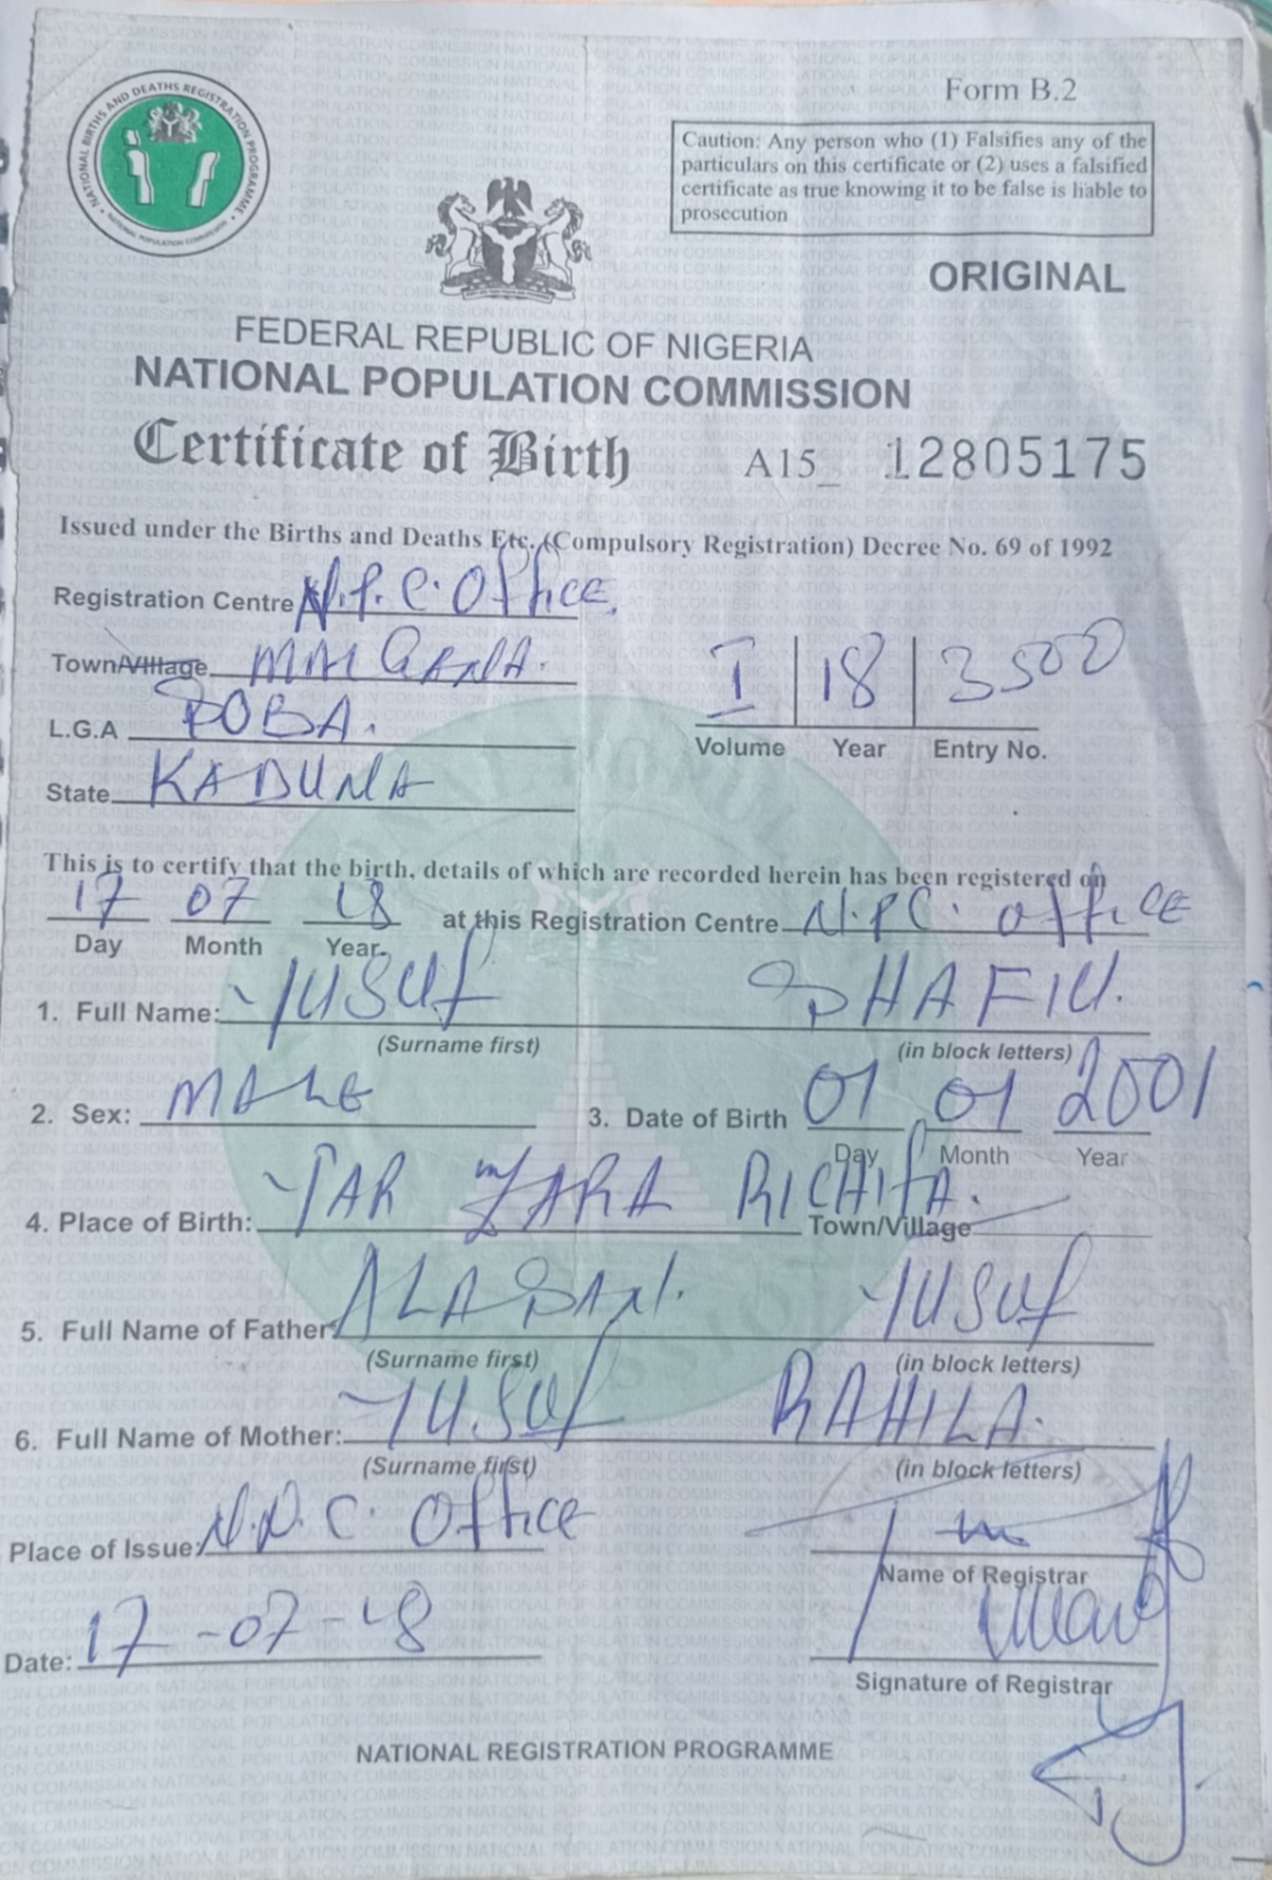 NATIONAL BIRTHS AND DEATHS REGISTRATION PROGRAMME
NATIONAL POPULATION COMMISSION
Form B.2
Caution: Any person who (1) Falsifies any of the
particulars on this certificate or (2) uses a falsified
certificate as true knowing it to be false is liable to
prosecution
ORIGINAL
FEDERAL REPUBLIC OF NIGERIA
NATIONAL POPULATION COMMISSION
Certificate of Birth A15_ 12805175
Issued under the Births and Deaths Etc. (Compulsory Registration) Decree No. 69 of 1992
Registration Centre N.P.C. Office.
Town/Village
L.G.A SOBA.
State KADUNA
I 18 3500
Volume Year Entry No.
This is to certify that the birth, details of which are recorded herein has been registered on
17 07 18 at this Registration Centre N.P.C. office
Day Month Year
1. Full Name: YUSUF SHAFIU.
(Surname first) (in block letters)
2. Sex: MALE 3. Date of Birth 01 01 2001
Day Month Year
4. Place of Birth: RICHIFA. Town/Village
5. Full Name of Father YUSUF
(Surname first) (in block letters)
6. Full Name of Mother: YUSUF RAHILA.
(Surname first) (in block letters)
Place of Issue: N.P.C. Office
Name of Registrar
Date: 17-07-18
Signature of Registrar
NATIONAL REGISTRATION PROGRAMME